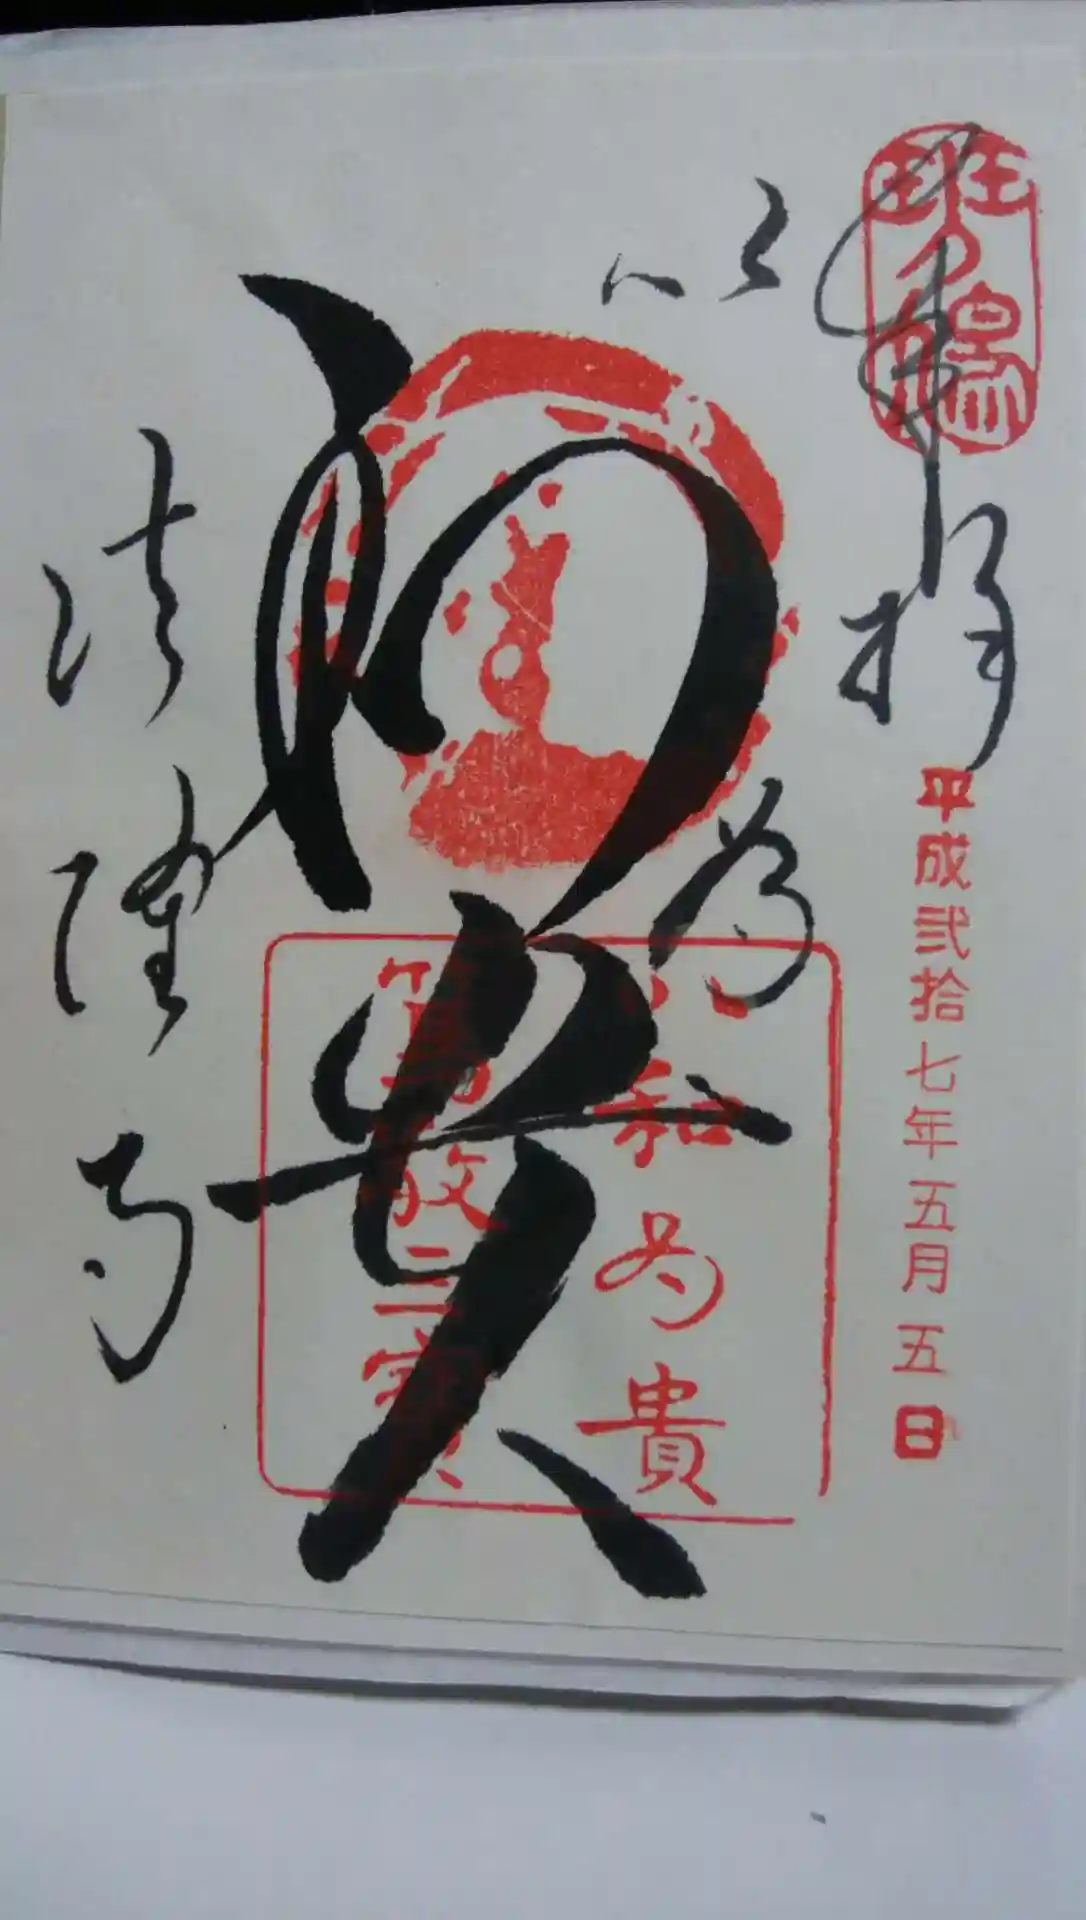 斑鳩
奉拝
平成弐拾七年五月五日
以和為貴
以和為貴
篤敬三寶
法隆寺